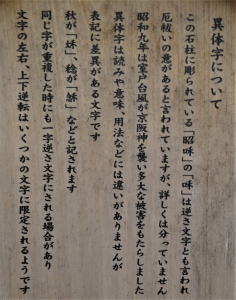 異体字について
この石柱に彫られている「昭𠰸」の「𠰸」は逆さ文字とも言われ
厄祓いの意があると言われていますが、詳しくは分っていません
昭和九年は室戸台風が京阪神を襲い多大な被害をもたらしました
異体字は読みや意味、用法などには違いがありませんが
表記に差異がある文字です
秋が「秌」、稔が「」などと記されます
同じ字が重複した時にも一字逆さ文字にされる場合があり
文字の左右、上下逆転はいくつかの文字に限定されるようです